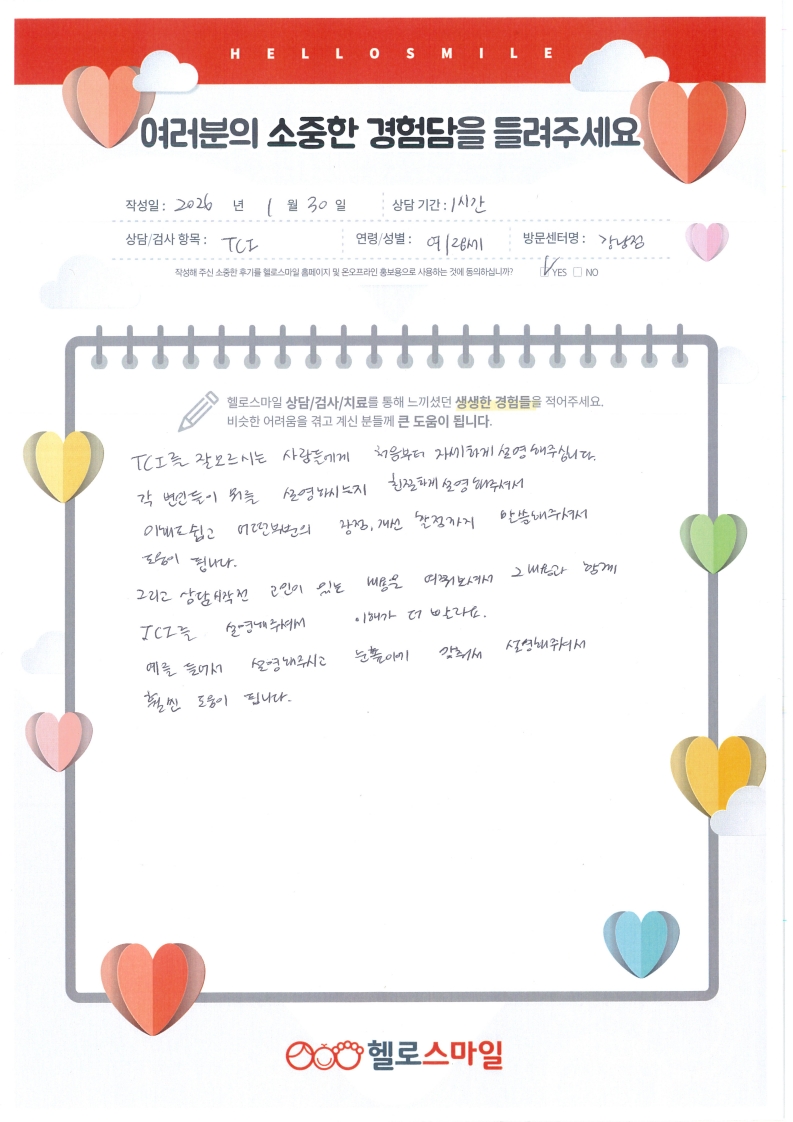 HELLOSMILE
여러분의 소중한 경험담을 들려주세요
작성일 : 2026 년 1 월 30 일 상담 기간 : 1시간
상담/검사 항목 : TCI 연령/성별 : 여/28세 방문센터명 : 강남점
작성해 주신 소중한 후기를 헬로스마일 홈페이지 및 온오프라인 홍보용으로 사용하는 것에 동의하십니까? YES NO
헬로스마일 상담/검사/치료를 통해 느끼셨던 생생한 경험들을 적어주세요.
비슷한 어려움을 겪고 계신 분들께 큰 도움이 됩니다.
TCI를 잘모르시는 사람들에게 처음부터 자세하게 설명해주십니다.
각 변인들이 뭐를 설명하시는지 친절하게 설명해주셔서
이해도쉽고 어떤부분의 장점, 개선 할점까지 말씀해주셔서
도움이 됩니다.
그리고 상담시작전 고민이 있는 내용을 여쭤보셔서 그내용과 함께
TCI를 설명해주셔서 이해가 더 빨라요.
예를 들어서 설명해주시고 눈높이에 맞춰서 설명해주셔서
훨씬 도움이 됩니다.
헬로스마일